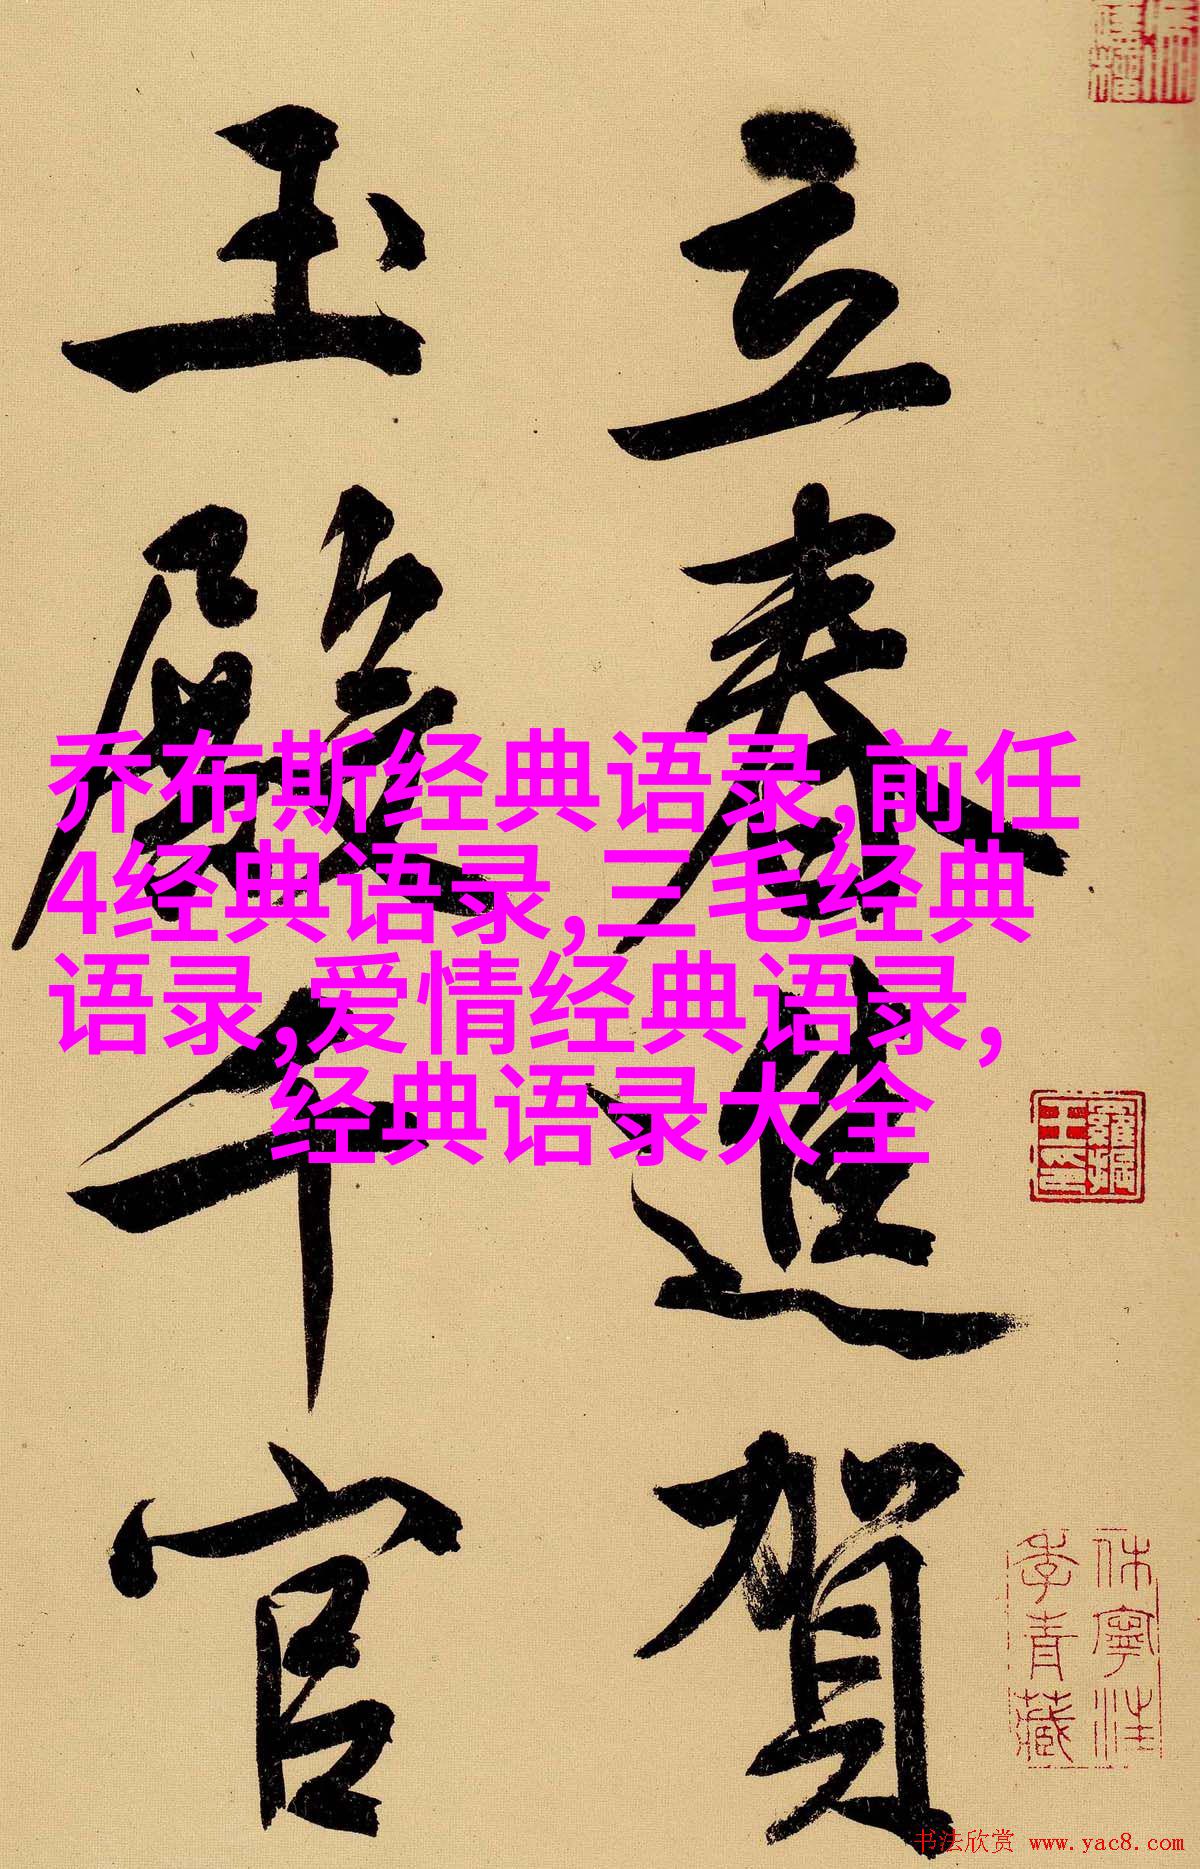 立春進賀
玉殿千官
乔布斯经典语录,前任
4经典语录,三毛经典
语录,爱情经典语录,
经典语录大全
休寧汪
季青藏
书法欣赏 www.yac8.com